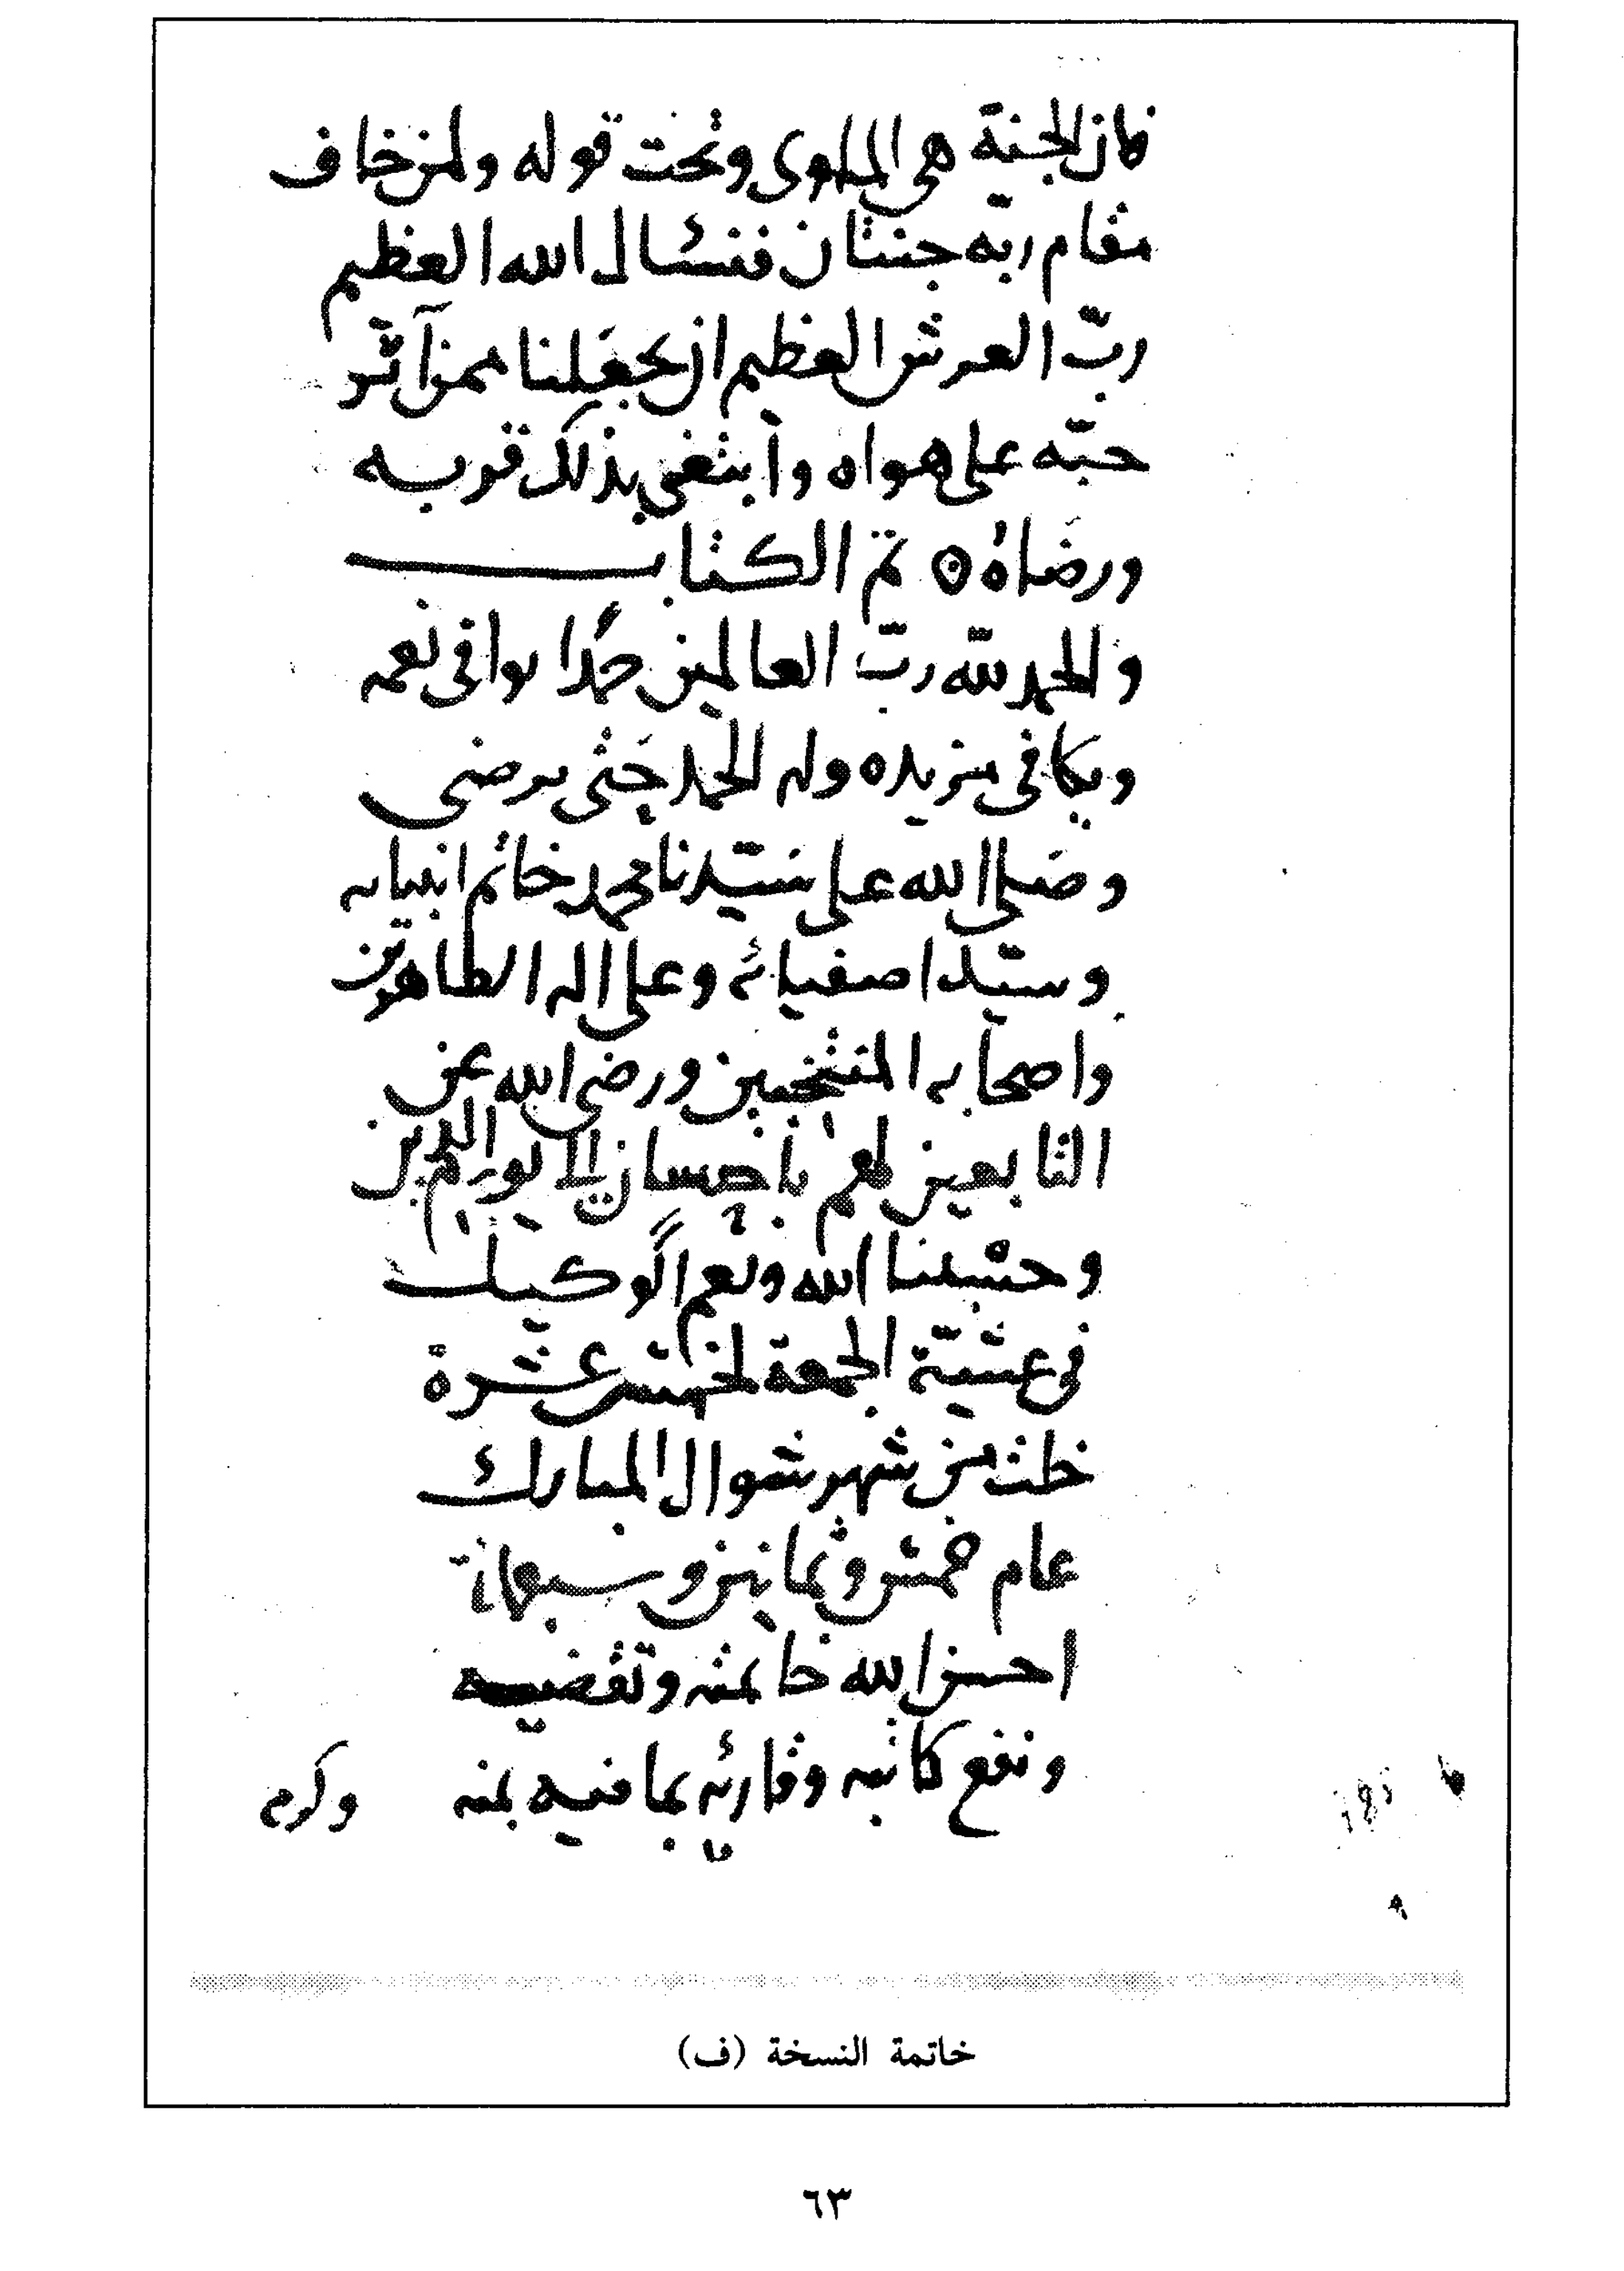 فان الجنة هي الماوى وتحت قوله ولمن خاف
مقام ربّه جنتان فنسئال الله العظيم
ربّ العرش العظيم ان يجعلنا ممن آثر
حبّه على هواه وابتغى بذلك قربه
ورضاه ۞ تمّ الكتاب
والحمد لله ربّ العالمين حمدًا يوافى نعمه
ويكافى مزيده وله الحمد حتى يرضى
وصلى الله على سيّدنا محمد خاتم انبيايه
وسيّد اصفيائه وعلى اله الطاهرين
واصحابه المنتخبين ورضى الله عن
التابعين لهم باحسان الى يوم الدين
وحسْبنا الله ونعم الوكيل
فى عشيّة الجمعة لخمس عشرة
خلت من شهر شوال المبارك
عام خمس وثمانين وسبعمائة
احسن الله خاتمته وتقضيه
ونفع كاتبه وقارئه بما فيه بمنه وكرم
خاتمة النسخة (ف)
٦٣